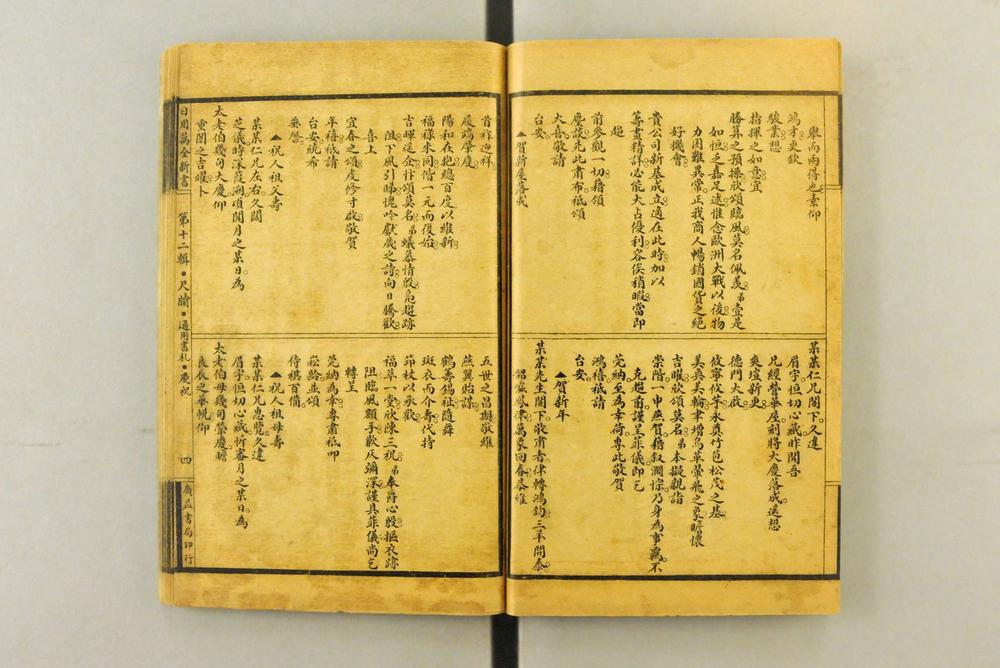 舉而兩得也素仰
鴻才更欽
駿業想
指揮之如意宜
勝算之預操欣頌臨風莫名佩羨弟壹是
如恒乏嘉足述惟念歐洲大戰以後物
力困難異常正我商人暢銷國貨之絕
好機會
貴公司新基成立適在此時加以
籌畫精詳必能大占優利容俟稍暇當即
趨
前參觀一切藉領
麈談先此肅布祗頌
大喜敬請
台安
▲賀新屋落成
某某仁兄閣下久違
眉宇恒切心藏昨聞吾
兄經營華屋刻將大慶落成遙想
爽塏新更
德門大啟
攸寧攸芋永奠竹苞松茂之基
美輪增鳥革翬飛之象瞻懷
吉曜欣頌莫名弟本擬親詣
崇階一申燕賀藉叙濶悰乃身為事羈不
克趨前謹呈菲儀即乞
莞納至為幸荷專此敬賀
鴻禧祗請
台安
▲賀新年
某某先生閣下敬肅者律轉鴻鈞三羊開泰
韶庭鳳律萬象回春恭維
首祚迎祥
履端肇慶
陽和在抱總百度以維新
福祿來同偕一元而復始
吉暉遙企忭頌莫名弟蟻慕情殷鳧趨跡
阻下風引睇愧吟獻歲之詩向日騰歡
喜上
宜春之頌虔修寸啟敬賀
年禧祗請
台安統希
垂詧
▲祝人祖父壽
某某仁兄左右久闊
芝儀時深葭溯頃聞月之某日為
太老伯幾旬大慶仰
重闈之吉曜卜
五世之昌期敬維
燕翼貽謀
鶴壽錫祉隨舜
斑衣而介壽代持
笻杖以承歡
福萃一堂欣陳三祝弟奉爵心殷摳衣跡
阻臨風額手歉仄彌深謹具菲儀尚乞
轉呈
莞納為幸專肅祗叩
崧齡並頌
侍祺百備
▲祝人祖母壽
某某仁兄惠覽久違
眉宇恒切心藏忻審月之某日為
太老伯母幾旬榮慶瞻
良辰之華帨仰
日用萬全新書
第十二輯・尺牘・通用書札・慶祝
四
廣益書局印行